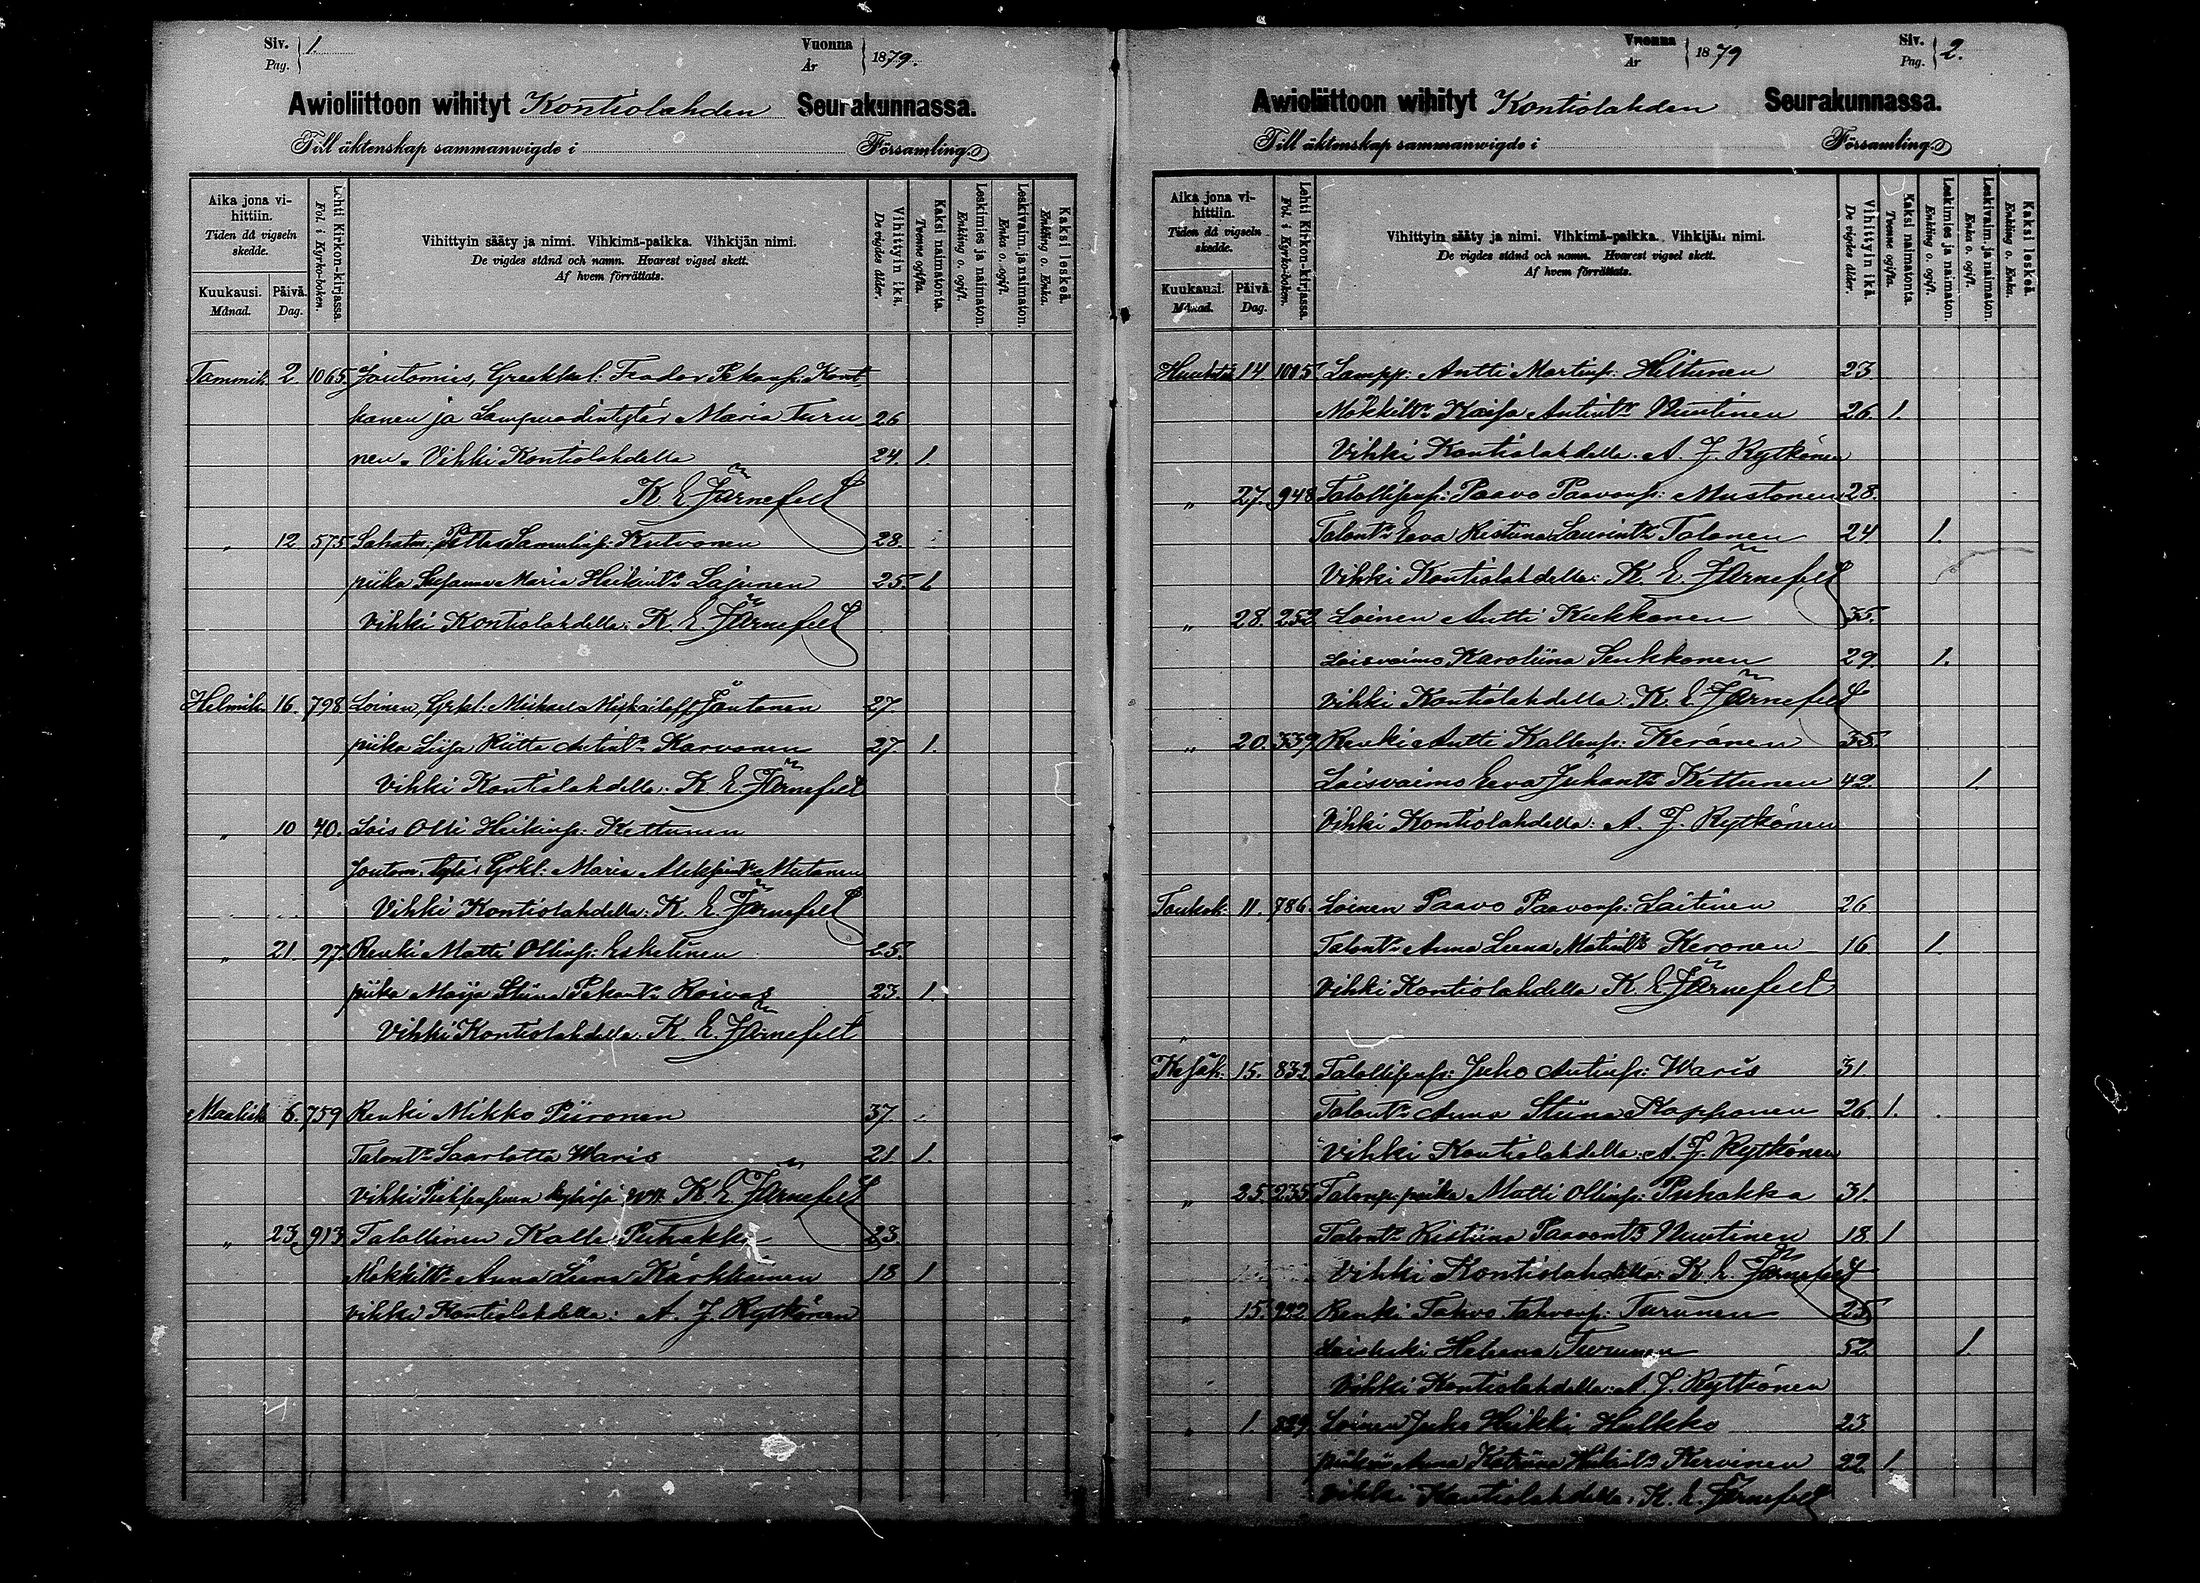 Siv. Pag. 1.
Vuonna År 1879.
Awioliittoon wihityt Kontiolahden Seurakunnassa.
Till äktenskap sammanwigde i Församling.
Aika jona vihittiin.
Tiden då vigseln skedde.
Kuukausi. Månad.
Päivä. Dag.
Lehti Kirkon-kirjassa.
Fol. i Kyrko-boken.
Vihittyin sääty ja nimi. Vihkimä-paikka. Vihkijän nimi.
De vigdes stånd och namn. Hvarest vigsel skett.
Af hvem förrättats.
Vihittyin ikä.
De vigdes ålder.
Kaksi naimatonta.
Twenne ogifta.
Leskimies ja naimaton.
Enkling o. ogift.
Leskivaim. ja naimaton.
Enka o. ogift.
Kaksi leskeä.
Enkling o. Enka.
Tammik. 2. 1065 Joutomies, Grekkal: Feodor Pekanp: Kont-
panen ja Lampuodintytär Maria Turu- 26
nen. Vihki Kontiolahdella 24. 1.
K. E. Järnefelt
" 12 575 Petter Samulinp: Kutvonen 28.
piika Susanna Maria Heikint:r Lajunen 25. 1
Vihki Kontiolahdella: K. E. Järnefelt
Helmik. 16. 798 Loinen, Grkl: Mikaela Mihailoff Jäntonen 27
piika Liisa Riitta Antint:r Karvonen 27 1.
Vihki Kontiolahdella: K. E. Järnefelt
" 10 40. Lois Olli Heikinp: Kettunen
Joutom. tytär Grkl: Maria Mutanen
Vihki Kontiolahdella: K. E. Järnefelt
" 21. 27 Renki Matti Ollinp: Eskelinen 25.
piika Maija Stiina Pekant:r Roivas 23. 1.
Vihki Kontiolahdella: K. E. Järnefelt
Maalisk. 6. 759 Renki Mikko Piironen 37.
Talont:r Saarlotta Waris 21 1.
Vihki K. E. Järnefelt
" 23. 913 Talollinen Kalle Puhakka 23.
Mökkilt:r Anna Leena Kärkkäinen 18 1
Vihki Kontiolahdella: A. J. Rytkönen
Vuonna År 1879
Siv. Pag. 2.
Awioliittoon wihityt Kontiolahden Seurakunnassa.
Till äktenskap sammanwigde i Församling.
Aika jona vihittiin.
Tiden då vigseln skedde.
Kuukausi. Månad.
Päivä. Dag.
Lehti Kirkon-kirjassa.
Fol. i Kyrko-boken.
Vihittyin sääty ja nimi. Vihkimä-paikka. Vihkijän nimi.
De vigdes stånd och namn. Hvarest vigsel skett.
Af hvem förrättats.
Vihittyin ikä.
De vigdes ålder.
Kaksi naimatonta.
Twenne ogifta.
Leskimies ja naimaton.
Enkling o. ogift.
Leskivaim. ja naimaton.
Enka o. ogift.
Kaksi leskeä.
Enkling o. Enka.
Huhtik 14 1005 Lampp: Antti Martinp: Hiltunen 23.
Mökkilt:r Kaisa Antint:r Nuutinen 26 1.
Vihki Kontiolahdella: A. J. Rytkönen
" 27. 948 Talollisenp: Paavo Paavonp: Mustonen 28.
Talont:r Eeva Ristiina Laurint:r Tolonen 24 1.
Vihki Kontiolahdella: K. E. Järnefelt
" 28. 252 Loinen Antti Kukkonen 35.
Loisvaimo Karoliina Senkkonen 29. 1.
Vihki Kontiolahdella: K. E. Järnefelt
" 20. 339 Renki Antti Kallenp: Keränen 35.
Loisvaimo Eeva Juhant:r Kettunen 42. 1.
Vihki Kontiolahdella: A. J. Rytkönen
Toukok. 11. 786. Loinen Paavo Paavonp: Laitinen 26
Talont:r Anna Leena Matint:r Keronen 16. 1.
Vihki Kontiolahdella K. E. Järnefelt
"
Kesäk. 15. 832 Talollisenp: Juho Antinp: Waris 31.
Talont:r Anna Stiina Kopponen 26. 1.
Vihki Kontiolahdella: A. J. Rytkönen
" 25. 235 Talonp: poika Matti Ollinp: Puhakka 31.
Talont:r Ristiina Paavont:r Nuutinen 18. 1
Vihki Kontiolahdella: K. E. Järnefelt
" 15. 992 Renki Tahvo Tahvonp: Turunen 25
Loisleski Helena Turunen 52. 1.
Vihki Kontiolahdella: A. J. Rytkönen
" 1. 829. Loinen Juho Heikki Hulkko 23.
Anna Katriina Heikint:r Kervinen 22. 1.
Vihki Kontiolahdella: K. E. Järnefelt